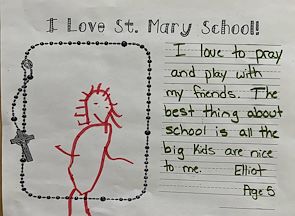 I Love St. Mary School!
I love to pray
and play with
my friends. The
best thing about
school is all the
big kids are nice
to me. Elliot
Age 5